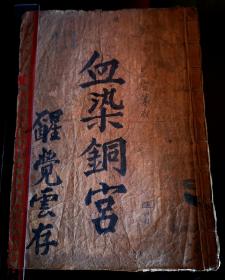 血染銅宮
醒覺雲存